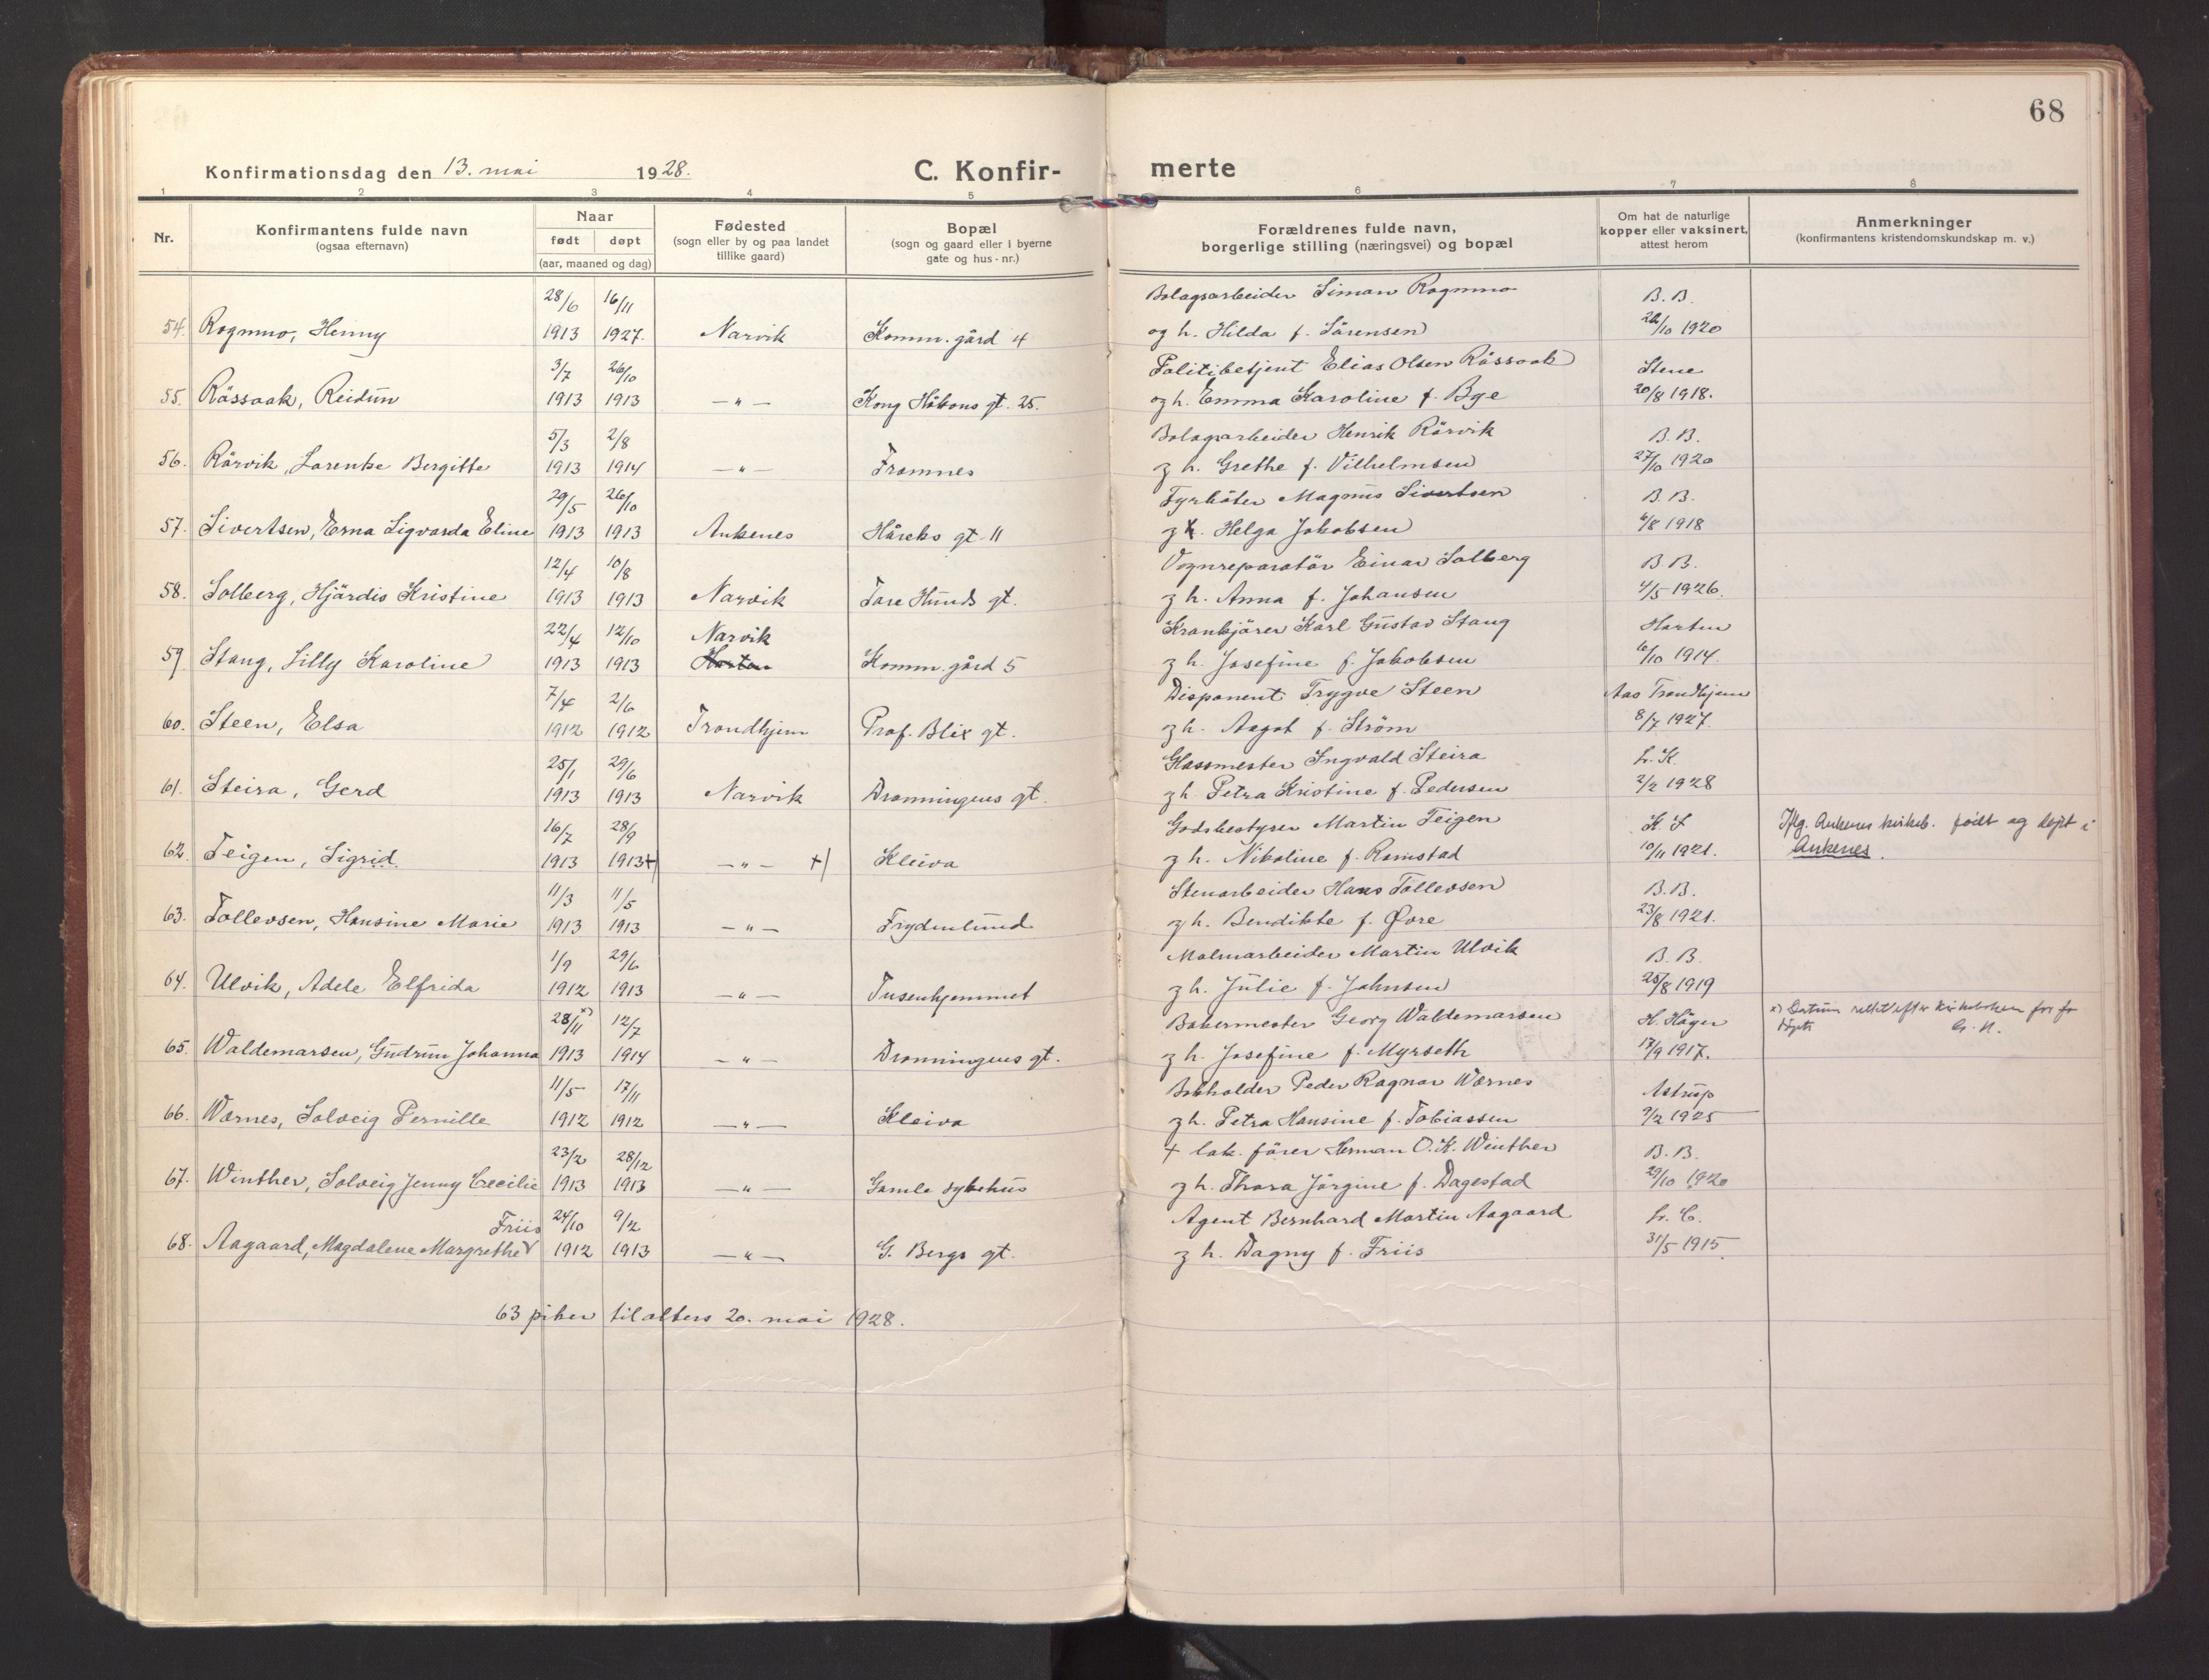 68
Konfirmationsdag den 13. mai 1928.
C. Konfir- merte
1 2 3 4 5 6 7 8
Nr.
Konfirmantens fulde navn
(ogsaa efternavn)
Naar
født døpt
(aar, maaned og dag)
Fødested
(sogn eller by og paa landet
tillike gaard)
Bopæl
(sogn og gaard eller i byerne
gate og hus-nr.)
Forældrenes fulde navn,
borgerlige stilling (næringsvei) og bopæl
Om hat de naturlige
kopper eller vaksinert,
attest herom
Anmerkninger
(konfirmantens kristendomskundskap m. v.)
28/6 16/11 Bolagsarbeider Simon Rognmo B. B.
54. Rognmo, Henny 1913 1927. Narvik Komm. gård 4 og h. Hilda f. Sörensen /10 1920
3/7 26/10 Politibetjent Elias Olsen Rössaak Stene
55. Rössaak, Reidun 1913 1913 —„— Kong Håkons gt. 25. og h. Emma Karoline f. Bge 20/8 1918.
5/3 2/8 Bolagsarbeider Henrik Rörvik B. B.
56. Rörvik, Larentse Bergitte 1913 1914 —„— Framnes og h. Grethe f. Vilhelmsen 27/10 1920
29/5 26/10 Fyrböter Magnus Sivertsen B. B.
57. Sivertsen, Erna Sigvarda Eline 1913 1913 Ankenes Håreks gt. 11 og h. Helga Jakobsen 6/8 1918
12/4 10/8 Vognreparatör Einar Solberg B. B.
58. Solberg, Hjördis Kristine 1913 1913 Narvik Tore Hunds gt. og h. Anna f. Johansen 4/5 1926.
22/4 12/10 Narvik Krankjörer Karl Gustav Stang Horten
59. Stang, Lilly Karoline 1913 1913 Horten Komm. gård 5 og h. Josefine f. Jakobsen 6/10 1914.
7/4 2/6 Disponent Trygve Steen Aas Trondhjem
60. Steen, Elsa 1912 1912 Trondhjem Prof. Blix gt. og h. Aagot f. Ström 8/7 1927.
25/1 29/6 Glassmester Ingvald Steira L. K.
61. Steira, Gerd 1913 1913 Narvik Dronningens gt. og h. Petra Kristine f. Pedersen 2/2 1928
16/7 28/9 Godsbestyrer Martin Teigen K. L Iflg. Ankenes kirkeb. født og døpt i
62. Teigen, Sigrid 1913 1913 +) —„— +) Kleiva og h. Nikoline f. Ramstad 10/11 1921. Ankenes.
11/3 11/5 Stenarbeider Hans Tollevsen B. B.
63. Tollevsen, Hansine Marie 1913 1913 —„— Frydenlund og h. Bendikte f. Øvre 23/8 1921.
1/9 29/6 Malmarbeider Martin Ulvik B. B.
64. Ulvik, Adele Elfrida 1912 1913 —„— Tusenhjemmet og h. Julie f. Johnsen 25/8 1919
28/11 x) 12/7 Bakermester Georg Waldemarsen H. Häger x) Datum rettet efter kirkeboken for
65. Waldemarsen, Gudrun Johanna 1913 1914 —„— Dronningens gt. og h. Josefine f. Myrseth 17/9 1917.
11/5 17/11 Bokholder Peder Ragnar Wærnes Astrup
66. Wærnes, Solveig Pernille 1912 1912 —„— Kleiva og h. Petra Hansine f. Tobiassen 9/2 1925
23/2 28/12 + lok. förer Herman O. K. Winther B. B.
67. Winther, Solveig Jenny Cecilie 1913 1913 —„— Gamle sykehus og h. Thora Jörgine f. Dagestad 29/10 1920
Friis 24/10 9/2 Agent Bernhard Martin Aagaard
68. Aagaard, Magdalene Margrethe 1912 1913 —„— G. Bergs gt. og h. Dagny f. Friis 31/5 1915.
63 piker til alters 20. mai 1928.